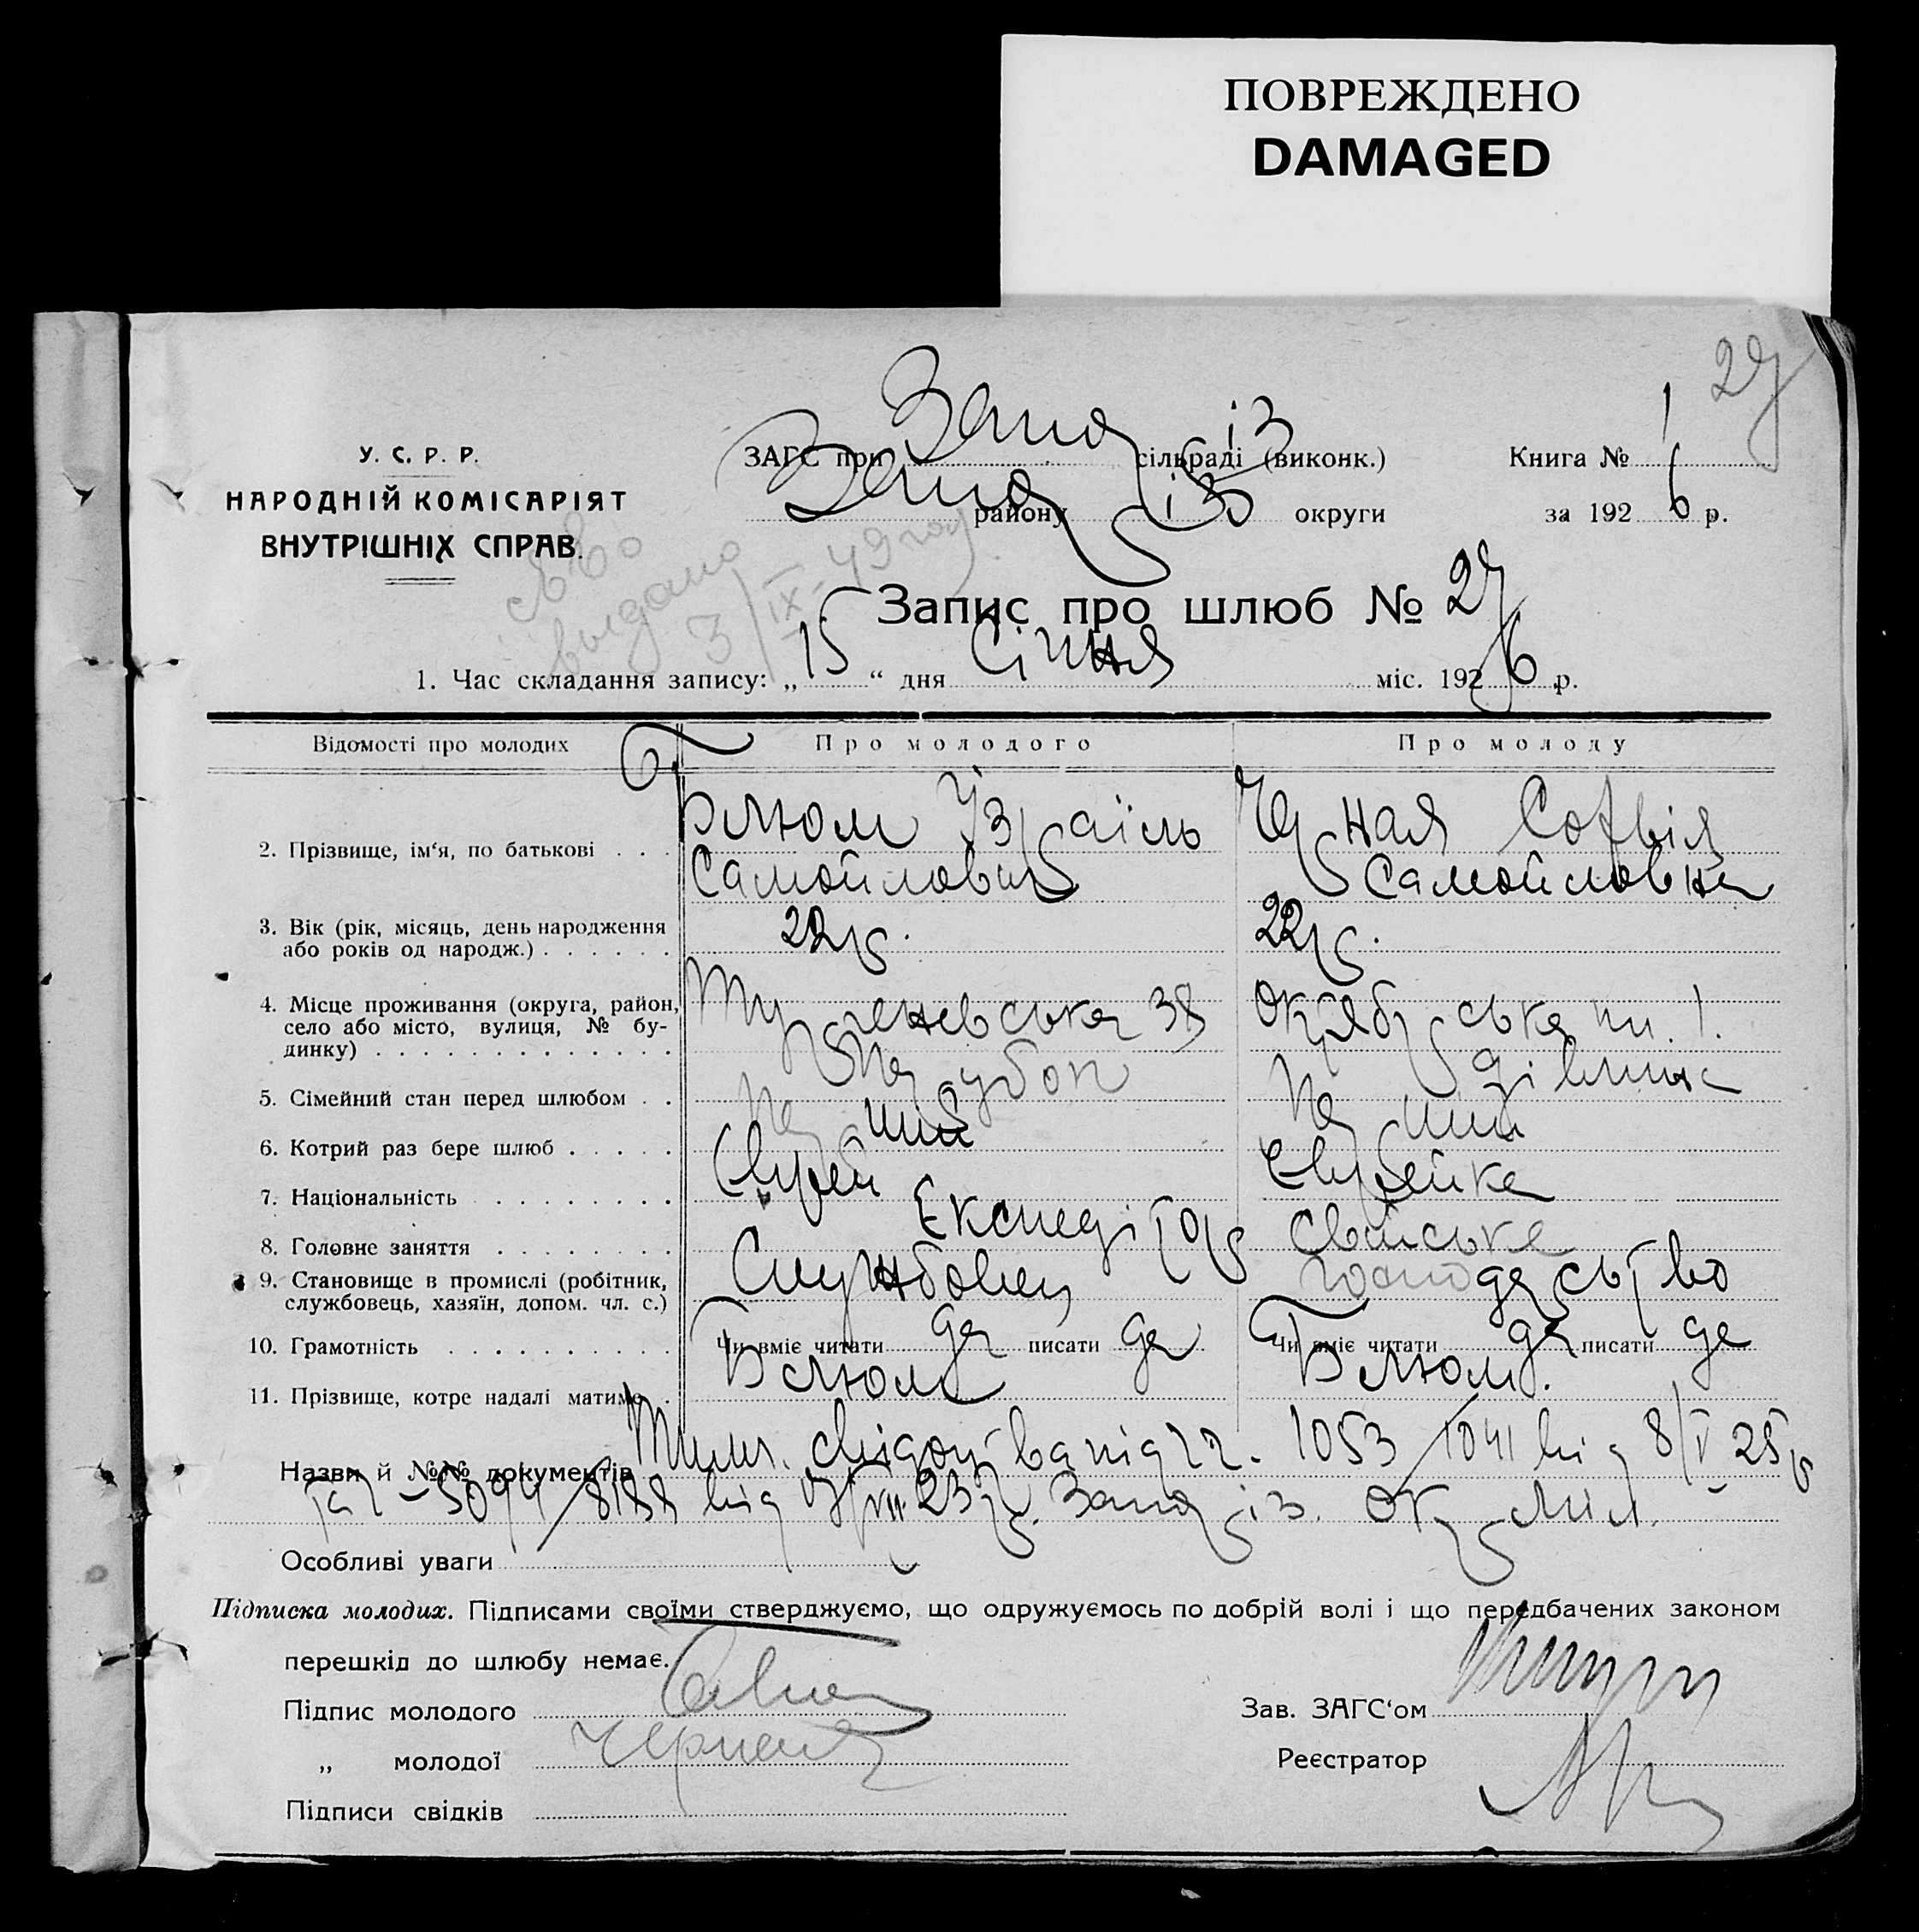 ПОВРЕЖДЕНО
DAMAGED
27
У. С. Р. Р.
НАРОДНІЙ КОМІСАРІЯТ
ВНУТРІШНІХ СПРАВ.
ЗАГС при Запоріз сільраді (виконк.)
Запоріз району округи
Книга № 1
за 1926 р.
св-во
выдано
3/IX-49 году
Запис про шлюб № 27
1. Час складання запису: „15“ дня Січня міс. 1926 р.
Відомості про молодих
Про молодого
Про молоду
2. Прізвище, ім‘я, по батькові . . .
Блюм Ізраїль
Самойлович
Чорная Софія
Самойловна
3. Вік (рік, місяць, день народження
або років од народж.) . . . . . .
22 р.
22 р.
4. Місце проживання (округа, район,
село або місто, вулиця, № бу-
динку) . . . . . . . . . . . . .
Тургеневська 38
Октябрська пл. 1.
5. Сімейний стан перед шлюбом . .
Парубок
дівиця
6. Котрий раз бере шлюб . . . . .
Перший
Перший
7. Національність . . . . . . . .
Єврей
Єврейка
8. Головне заняття . . . . . . . .
Експедітор
Свійське
9. Становище в промислі (робітник,
службовець, хазяїн, допом. чл. с.)
Службовец
господарство
10. Грамотність . . . . . . . . . .
Чи вміє читати да писати да
Чи вміє читати да писати да
11. Прізвище, котре надалі матиме .
Блюм
Блюм.
Назви й №№ документів
1053/1041 від 8/V 25 р
від 23 р. Запоріз. Окр. Міл.
Особливі уваги
Підписка молодих. Підписами своїми стверджуємо, що одружуємось по добрій волі і що передбачених законом
перешкід до шлюбу немає.
Підпис молодого
„ молодої Черная
Підписи свідків
Зав. ЗАГС‘ом
Реєстратор